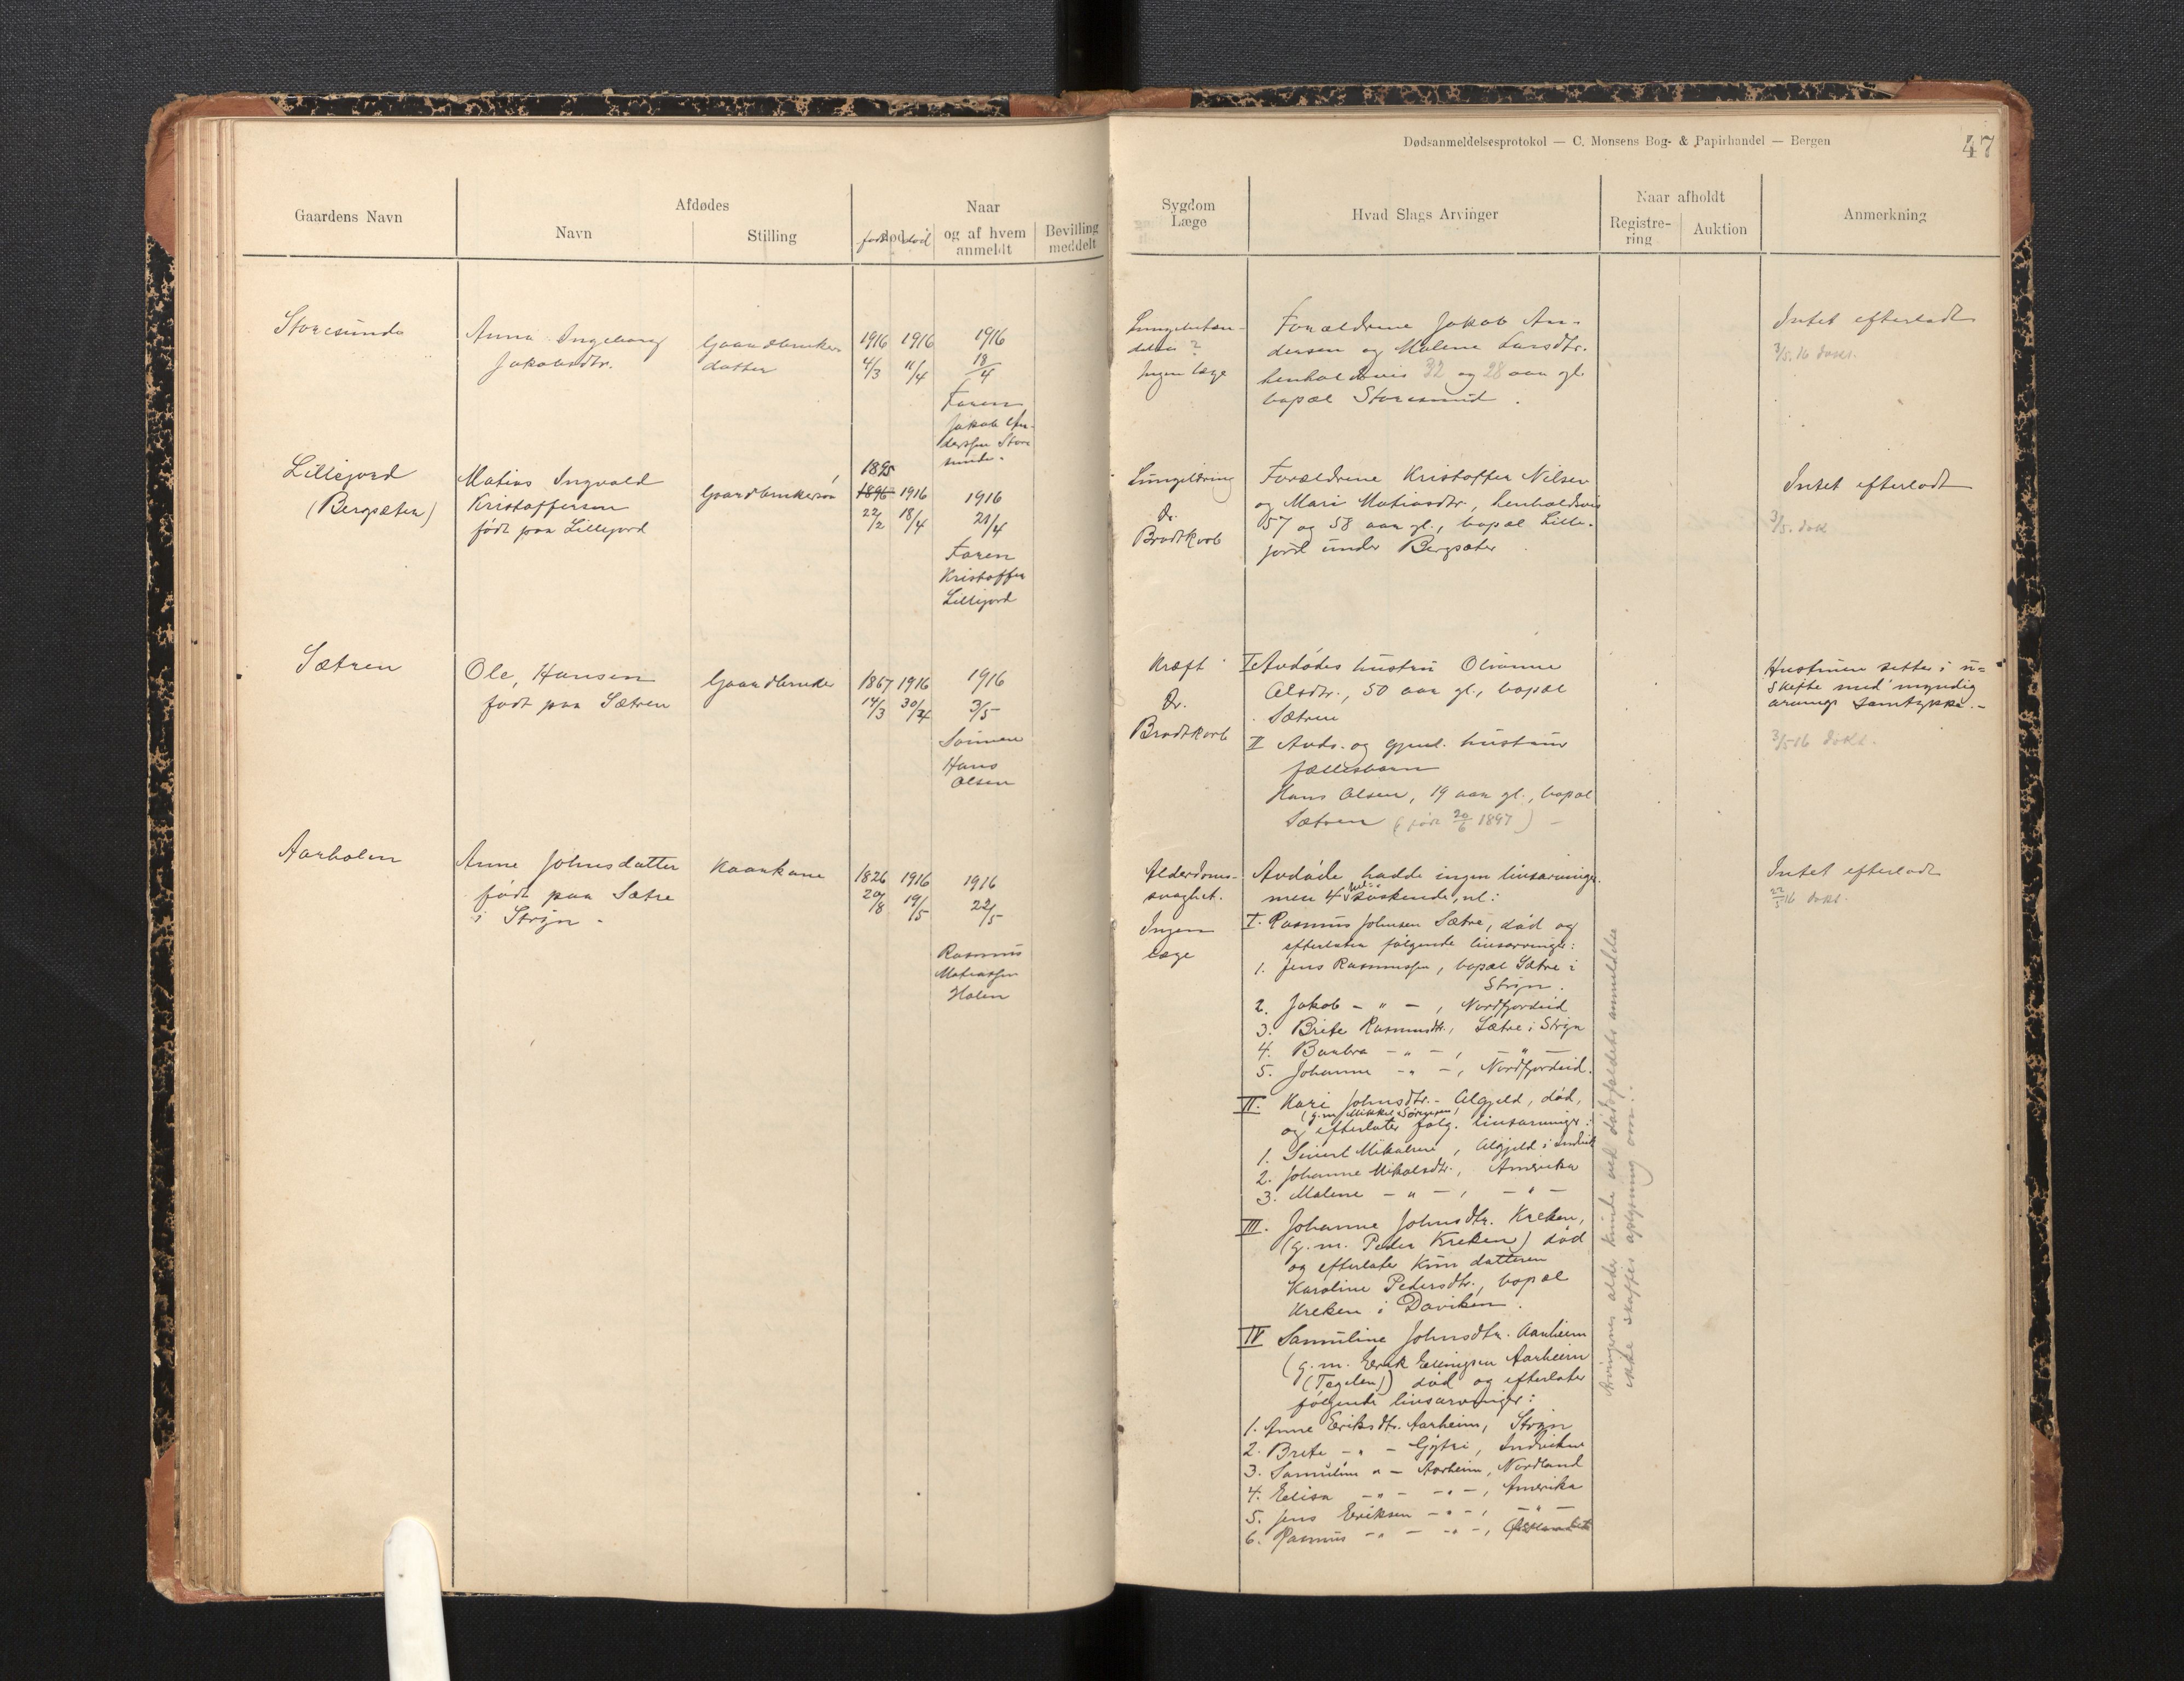 Dødsanmeldelsesprotokol — C. Monsens Bog- & Papirhandel — Bergen
47
Gaardens Navn
Afdødes
Navn
Stilling
Naar
født død
og af hvem
anmeldt
Bevilling
meddelt
Sygdom
Læge
Hvad Slags Arvinger
Naar afholdt
Registre-
ring
Auktion
Anmerkning
Storesunde
Anna Ingeborg
Jakobsdtr.
Gaardbruker-
datter
1916 1916
4/3 11/4
1916
18/4
Faren
Jakob An-
derssen Store
sunde.
Lungebetæn-
delse ?
Ingen læge
Forældrene Jakob An-
dersen og Malene Larsdtr.
henholdsvis 32 og 28 aar gl.
bopæl Storesund.
Intet efterladt
3/5. 16 dokt.
Lillejord
(Bergsæter)
Matias Ingvald
Kristoffersen
født paa Lillejord
Gaardbrukersøn
1895
1896 1916
22/2 18/4
1916
21/4
Faren
Kristoffer
Lillejord
Lungetæring
Dr.
Brodtkorb
Forældrene Kristoffer Nilsen
og Mari Matiasdtr., henholdsvis
57 og 58 aar gl., bopæl Lille-
jord under Bergsæter.
Intet efterladt
3/5. dok
Sætren
Ole Hansen
født paa Sætren
Gaardbruker
1867 1916
14/3 30/4
1916
3/5
Sønnen
Hans
Olsen
Kræft
Dr.
Brodtkorb
I Avdødes hustru Olianne
Olsdtr., 50 aar gl., bopæl
Sætren
II Avds. og gjenl. hustrus
fællesbarn
Hans Olsen, 19 aar gl., bopæl
Sætren (født 20/6 1897) –
Hustruen sitter i u-
skifte med myndig
arvings samtykke.-
3/5 16 dokt.
Aarholen
Anne Johnsdatter
født paa Sætre
i Stryn -
Kaarkone
1826 1916
20/8 19/5
1916
22/5
Rasmus
Matiassen
Holen
Alderdoms-
svaghet.
Ingen
læge
Avdøde hadde ingen livsarvinger.
men 4 hel-søskende, nl:
I. Rasmus Johnsen Sætre, død og
efterlater følgende livsarvinger:
1. Jens Rasmussen, bopæl Sætre i
Stryn.
2. Jakob – " – , Nordfjordeid
3. Brite Rasmusdtr., Sætre i Stryn
4. Barbra – " – , – " –
5. Johanne – " – , Nordfjordeid.
II. Kari Johnsdtr. - Alsgjeld, død,
(g.m. Mikkel Sørensen)
og efterlater følg. livsarvinger:
1. Sivert Mikalsen,
2. Johanne Mikalsdtr., Amerika
3. Malene – " – , – " –
III. Johanne Johnsdtr. Kreken,
(g.m. Peder Kreken) død
og efterlater kun datteren
Karoline Pedersdtr., bopæl
Kreken i Daviken.
IV Samuline Johnsdtr. Aarheim
(g.m. Erik Ellingsen Aarheim
død og efterlater
følgende livsarvinger:
1. Anne Eriksdtr. Aarheim, Stryn
2. Brite – " – Gjytri, Indviken
3. Samuline " – Aarheim, Nordland
4. Elisa – " – – " – , Amerika
5. Jens Eriksen – " – , – " –
6. Rasmus – " – – " – ,
Arvingernes alder kunde ved dødsfaldets anmeldelse
ikke skaffes oplysning om.
Intet efterladt
22/5 16 dokt.